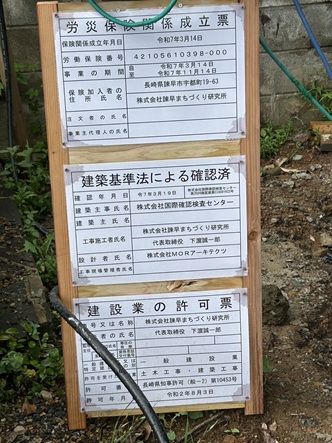 労災保険関係成立票
保険関係成立年月日 令和7年3月14日
労働保険番号 42105610398-000
事業の期間 自 令和7年3月14日
至 令和7年11月14日
保険加入者の住所氏名 長崎県諫早市宇都町19-63
株式会社諫早まちづくり研究所
注文者の氏名
事業主代理人の氏名
建築基準法による確認済
確認年月日 令和7年3月19日
建築主事氏名 株式会社国際確認検査センター
建築主氏名
工事施工者氏名 株式会社諫早まちづくり研究所
代表取締役 下渡誠一郎
設計者氏名 株式会社MORアーキテクツ
工事現場管理者氏名
建設業の許可票
号又は名称 株式会社諫早まちづくり研究所
者の氏名 代表取締役 下渡誠一郎
一般建設業
許可を受けた 土木工事・建築工事
許可番号 長崎県知事許可(般-2)第10453号
許可年月 令和2年8月3日